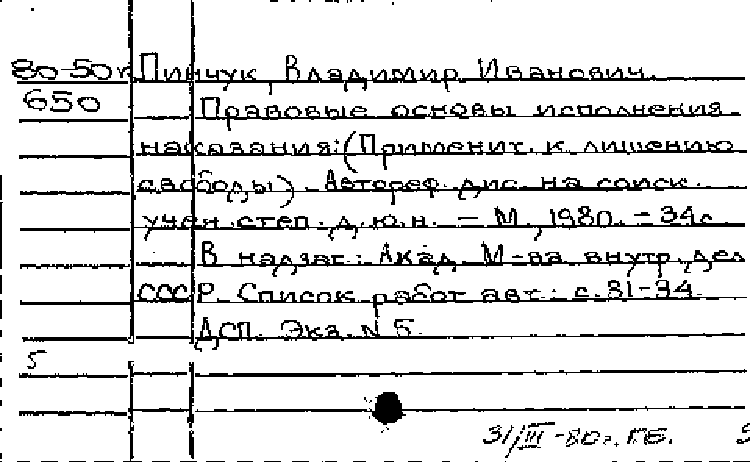 80-50г Пинчук, Владимир Иванович.
650 Правовые основы исполнения
наказания: (Применит. к лишению
свободы). Автореф. дис. на соиск.
учен. степ. д.ю.н. – М., 1980. – 34с.
В надзаг.: Акад. М-ва внутр. дел
СССР. Список работ авт.: с. 31-34.
ДСП. Экз. N 5.
5
31/III -80г.